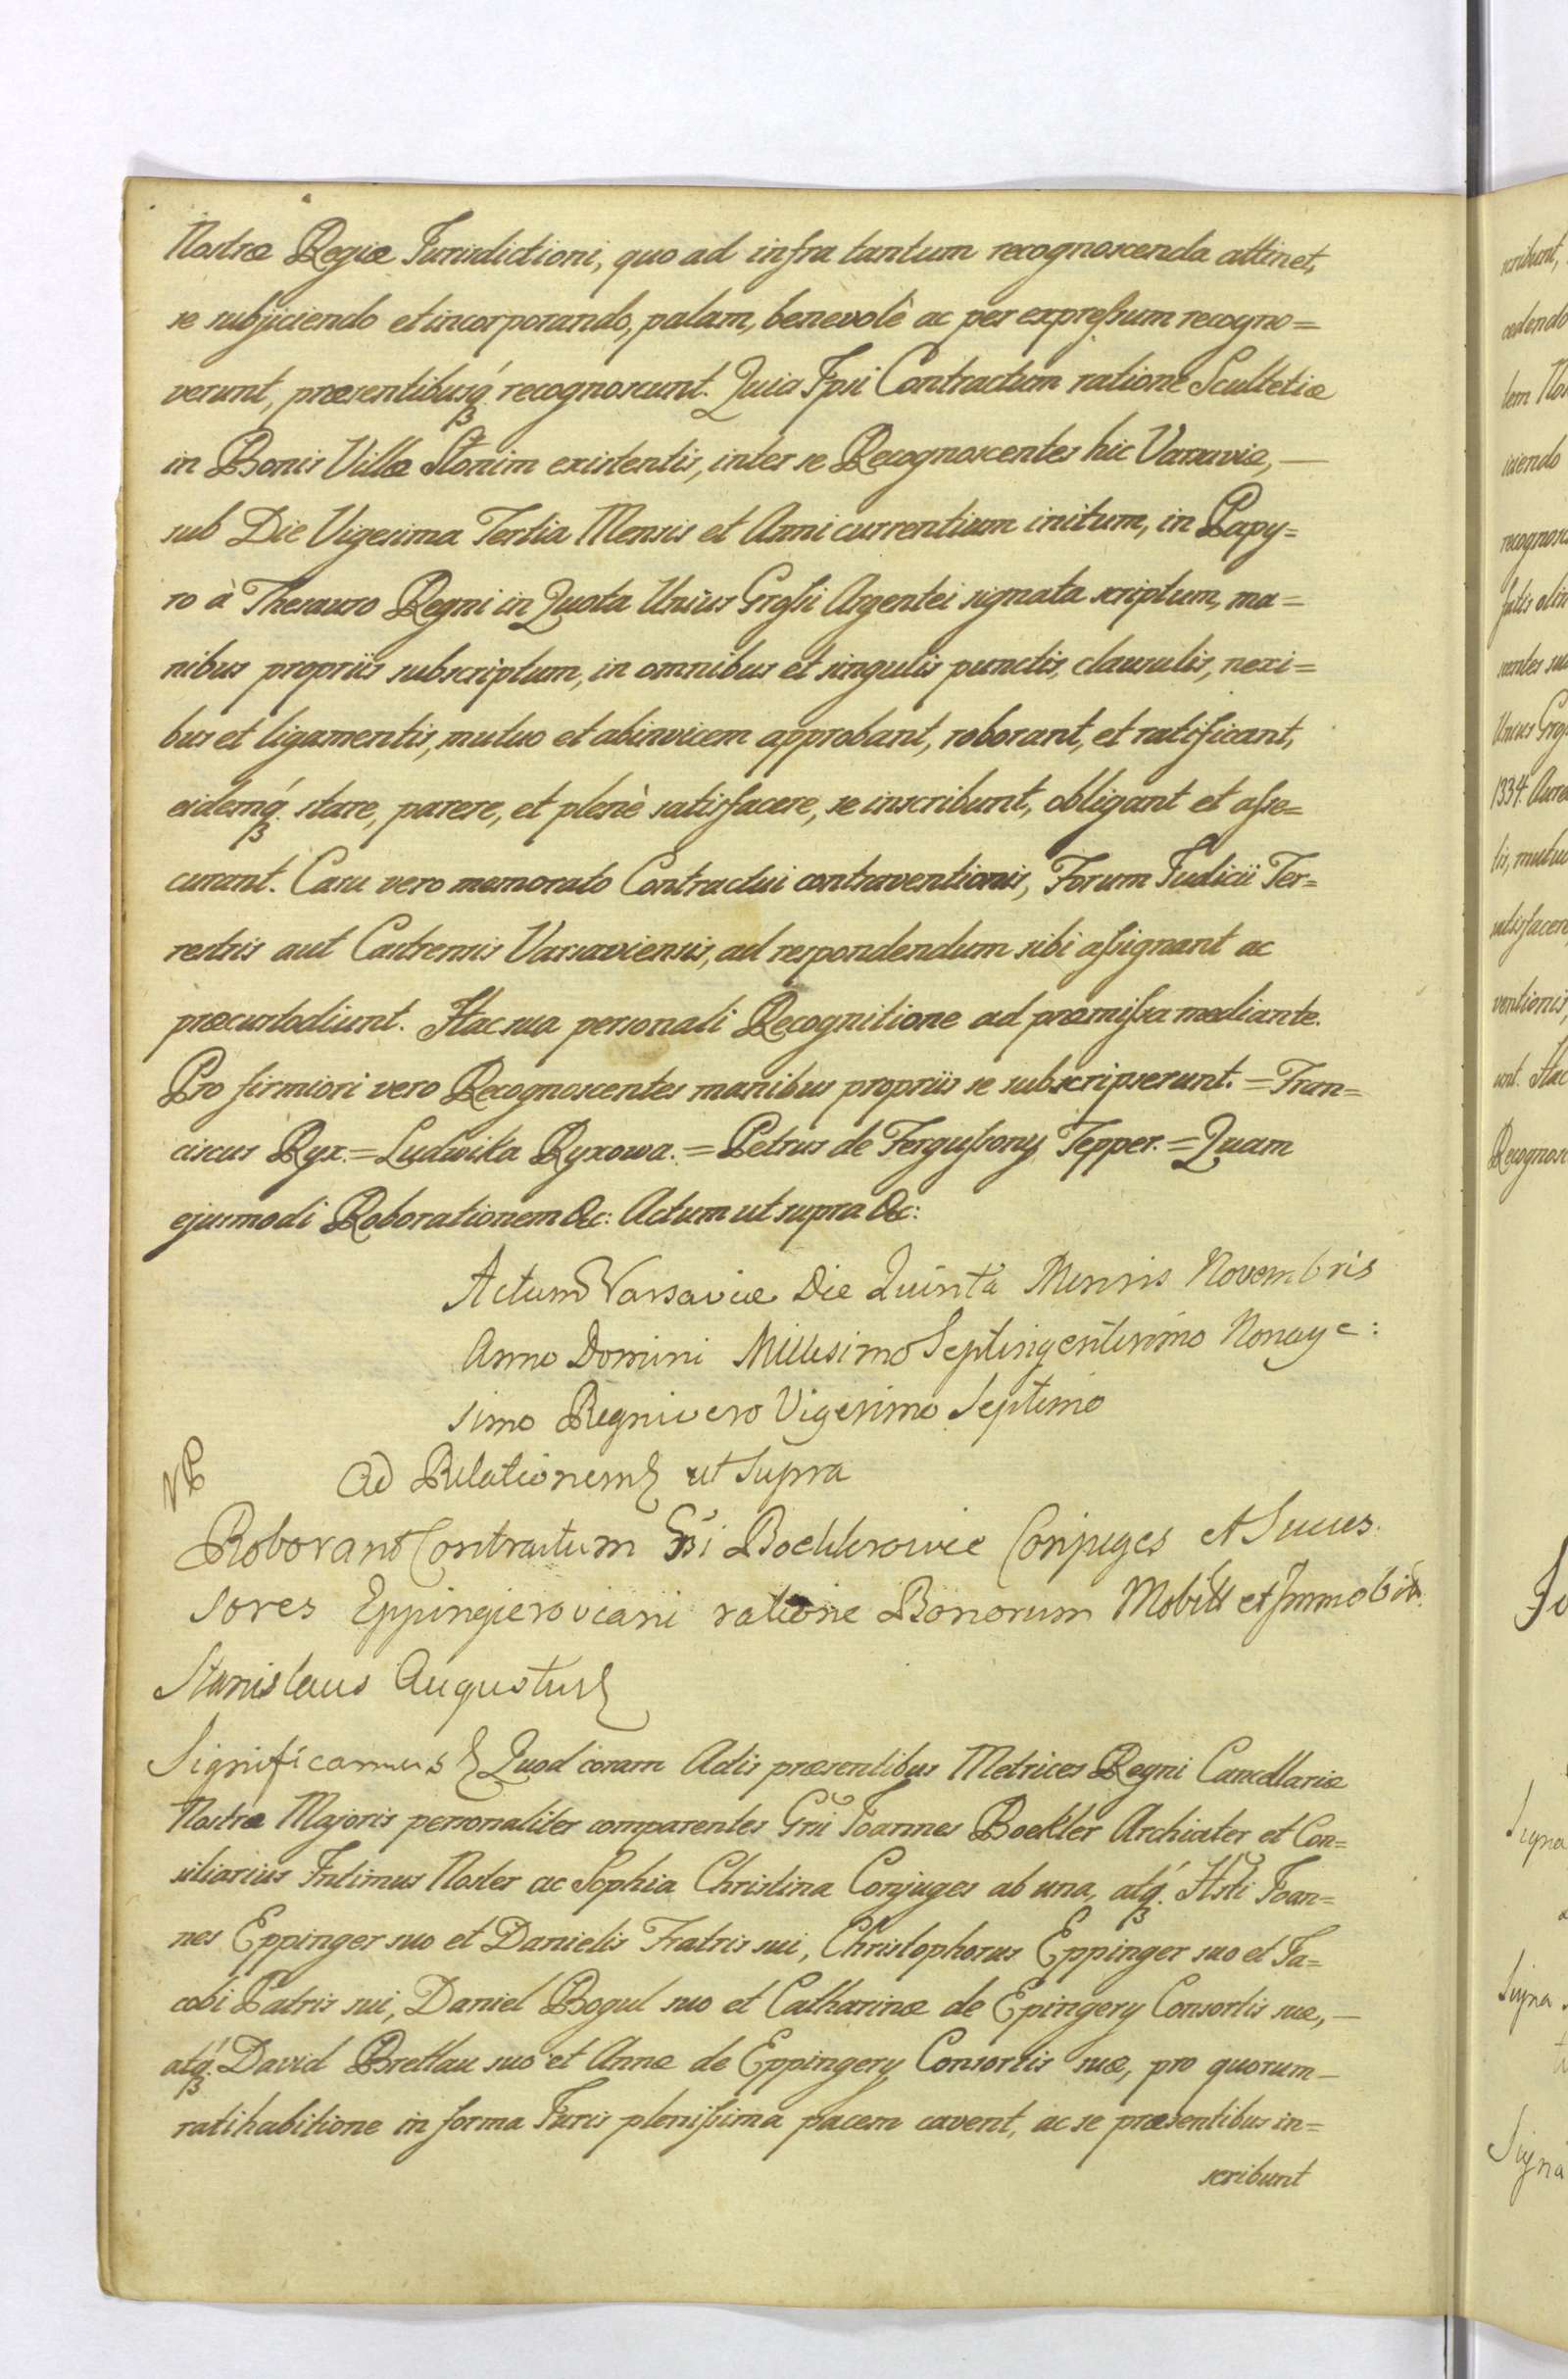 Nostræ Regiæ Jurisdictioni, quo ad infra tantum recognoscenda attinet,
se subjiciendo et incorporando, palam, benevolè ac per expreſsum recogno=
verunt, præsentibusq́ꝫ recognoscunt. Quia Ipsi Contractum ratione Scultetiæ
in Bonis Villæ Słonim existentis, inter se Recognoscentes hic Varsaviæ, —
sub Die Vigesima Tertia Mensis et Anni currentium initum, in Papy=
ro à Thesauro Regni in Quota Unius Groſsi Argentei signata scriptum, ma=
nibus propriis subscriptum, in omnibus et singulis punctis, clausulis, nexi=
bus et ligamentis, mutuo et abinvicem approbant, roborant, et ratificant,
eidemq́ꝫ stare, parere, et plenè satisfacere, se inscribunt, obligant et aſse=
curant. Casu vero memorato Contractui contraventionis, Forum Judicii Ter=
restris aut Castrensis Varsaviensis, ad respondendum sibi aſsignant ac
præcustodiunt. Hac sua personali Recognitione ad præmiſsa mediante.
Pro firmiori vero Recognoscentes manibus propriis se subscripserunt. = Fran=
ciscus Ryx. = Ludwika Ryxowa. = Petrus de Ferguſsony Tepper. = Quam
ejusmodi Roborationem &c: Actum ut supra &c:
Actum Varsaviæ Die Quinta Mensis Novembris
Anno Domini Millesimo Septingentesimo Nonage:
simo Regni vero Vigesimo Septimo
Ad Relationem ut Supra
Roborant Contractum Boeklerowie Conjuges et Succes:
sores Eppingieroviani ratione Bonorum Mobil et Immobil
Stanislaus Augustus
Significamus Quod coram Actis præsentibus Metrices Regni Cancellariæ
Nostræ Majoris personaliter comparentes Gñi Joannes Boekler Archiater et Con=
siliarius Intimus Noster ac Sophia Christina Conjuges ab una, atq́ꝫ Hsti Joan=
nes Eppinger suo et Danielis Fratris sui, Christophorus Eppinger suo et Ja=
cobi Patris sui, Daniel Bogul suo et Catharinæ de Epingery Consortis suæ, —
atq́ꝫ David Bretlau suo et Annæ de Eppingery Consortis suæ, pro quorum —
ratihabitione in forma Juris pleniſsima pacem cavent, ac se præsentibus in=
scribunt